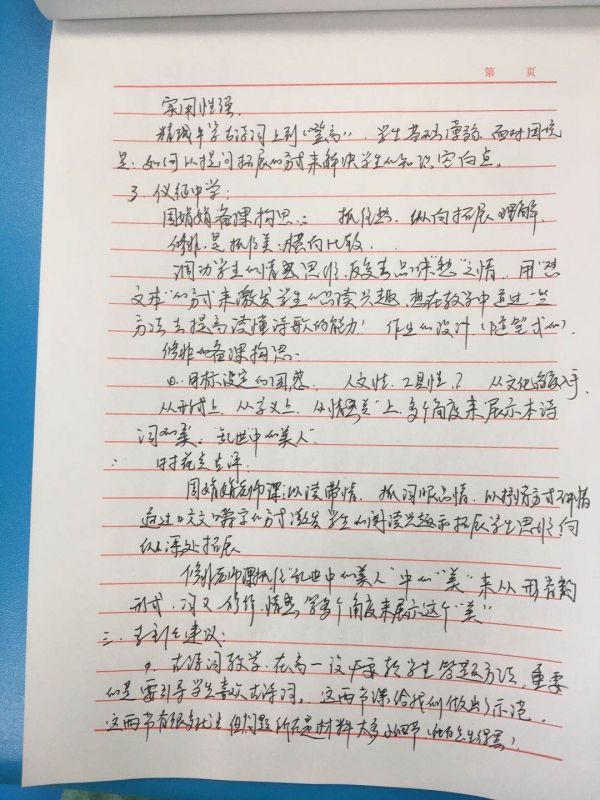 第 页
实用性强。
精诚中学古诗词上到《登高》，学生基础薄弱，面对困境
是：如何以提问拓展的方式来解决学生的知识空白点。
3. 仪征中学：
周娟娟备课构思：抓住愁，纵向拓展理解
是抓住美，横向比较。
调动学生的情感思维，反复去品味"愁"之情，用"
文本"的方式来激发学生的品读兴趣，想在教学中通过一些
方法去提高读懂诗歌的能力！作业的设计（随笔式的）
备课构思：
①. 目标设定的困惑，人文性，工具性？从文化角度入手，
从形式上，从字义上，从"情感美"上，多个角度来展示本诗
词的美。"乱世中的美人"
点评：
周娟娟老师课：以读带情，抓词眼品情，以抒情方式
通过咬文嚼字的方式激发学生的阅读兴趣和拓展学生思维向
纵深处拓展
老师课抓住"乱世中的美人"中的"美"来从形音韵
形式，词义，情感等多个角度来展示这个"美"
三. 建议：
①. 古诗词教学，在高一没必要教学生答题方法，重要
的是要引导学生喜欢古诗词。这两节课给我们做出了示范。
这两节有很多优点 但问题所在是材料太多